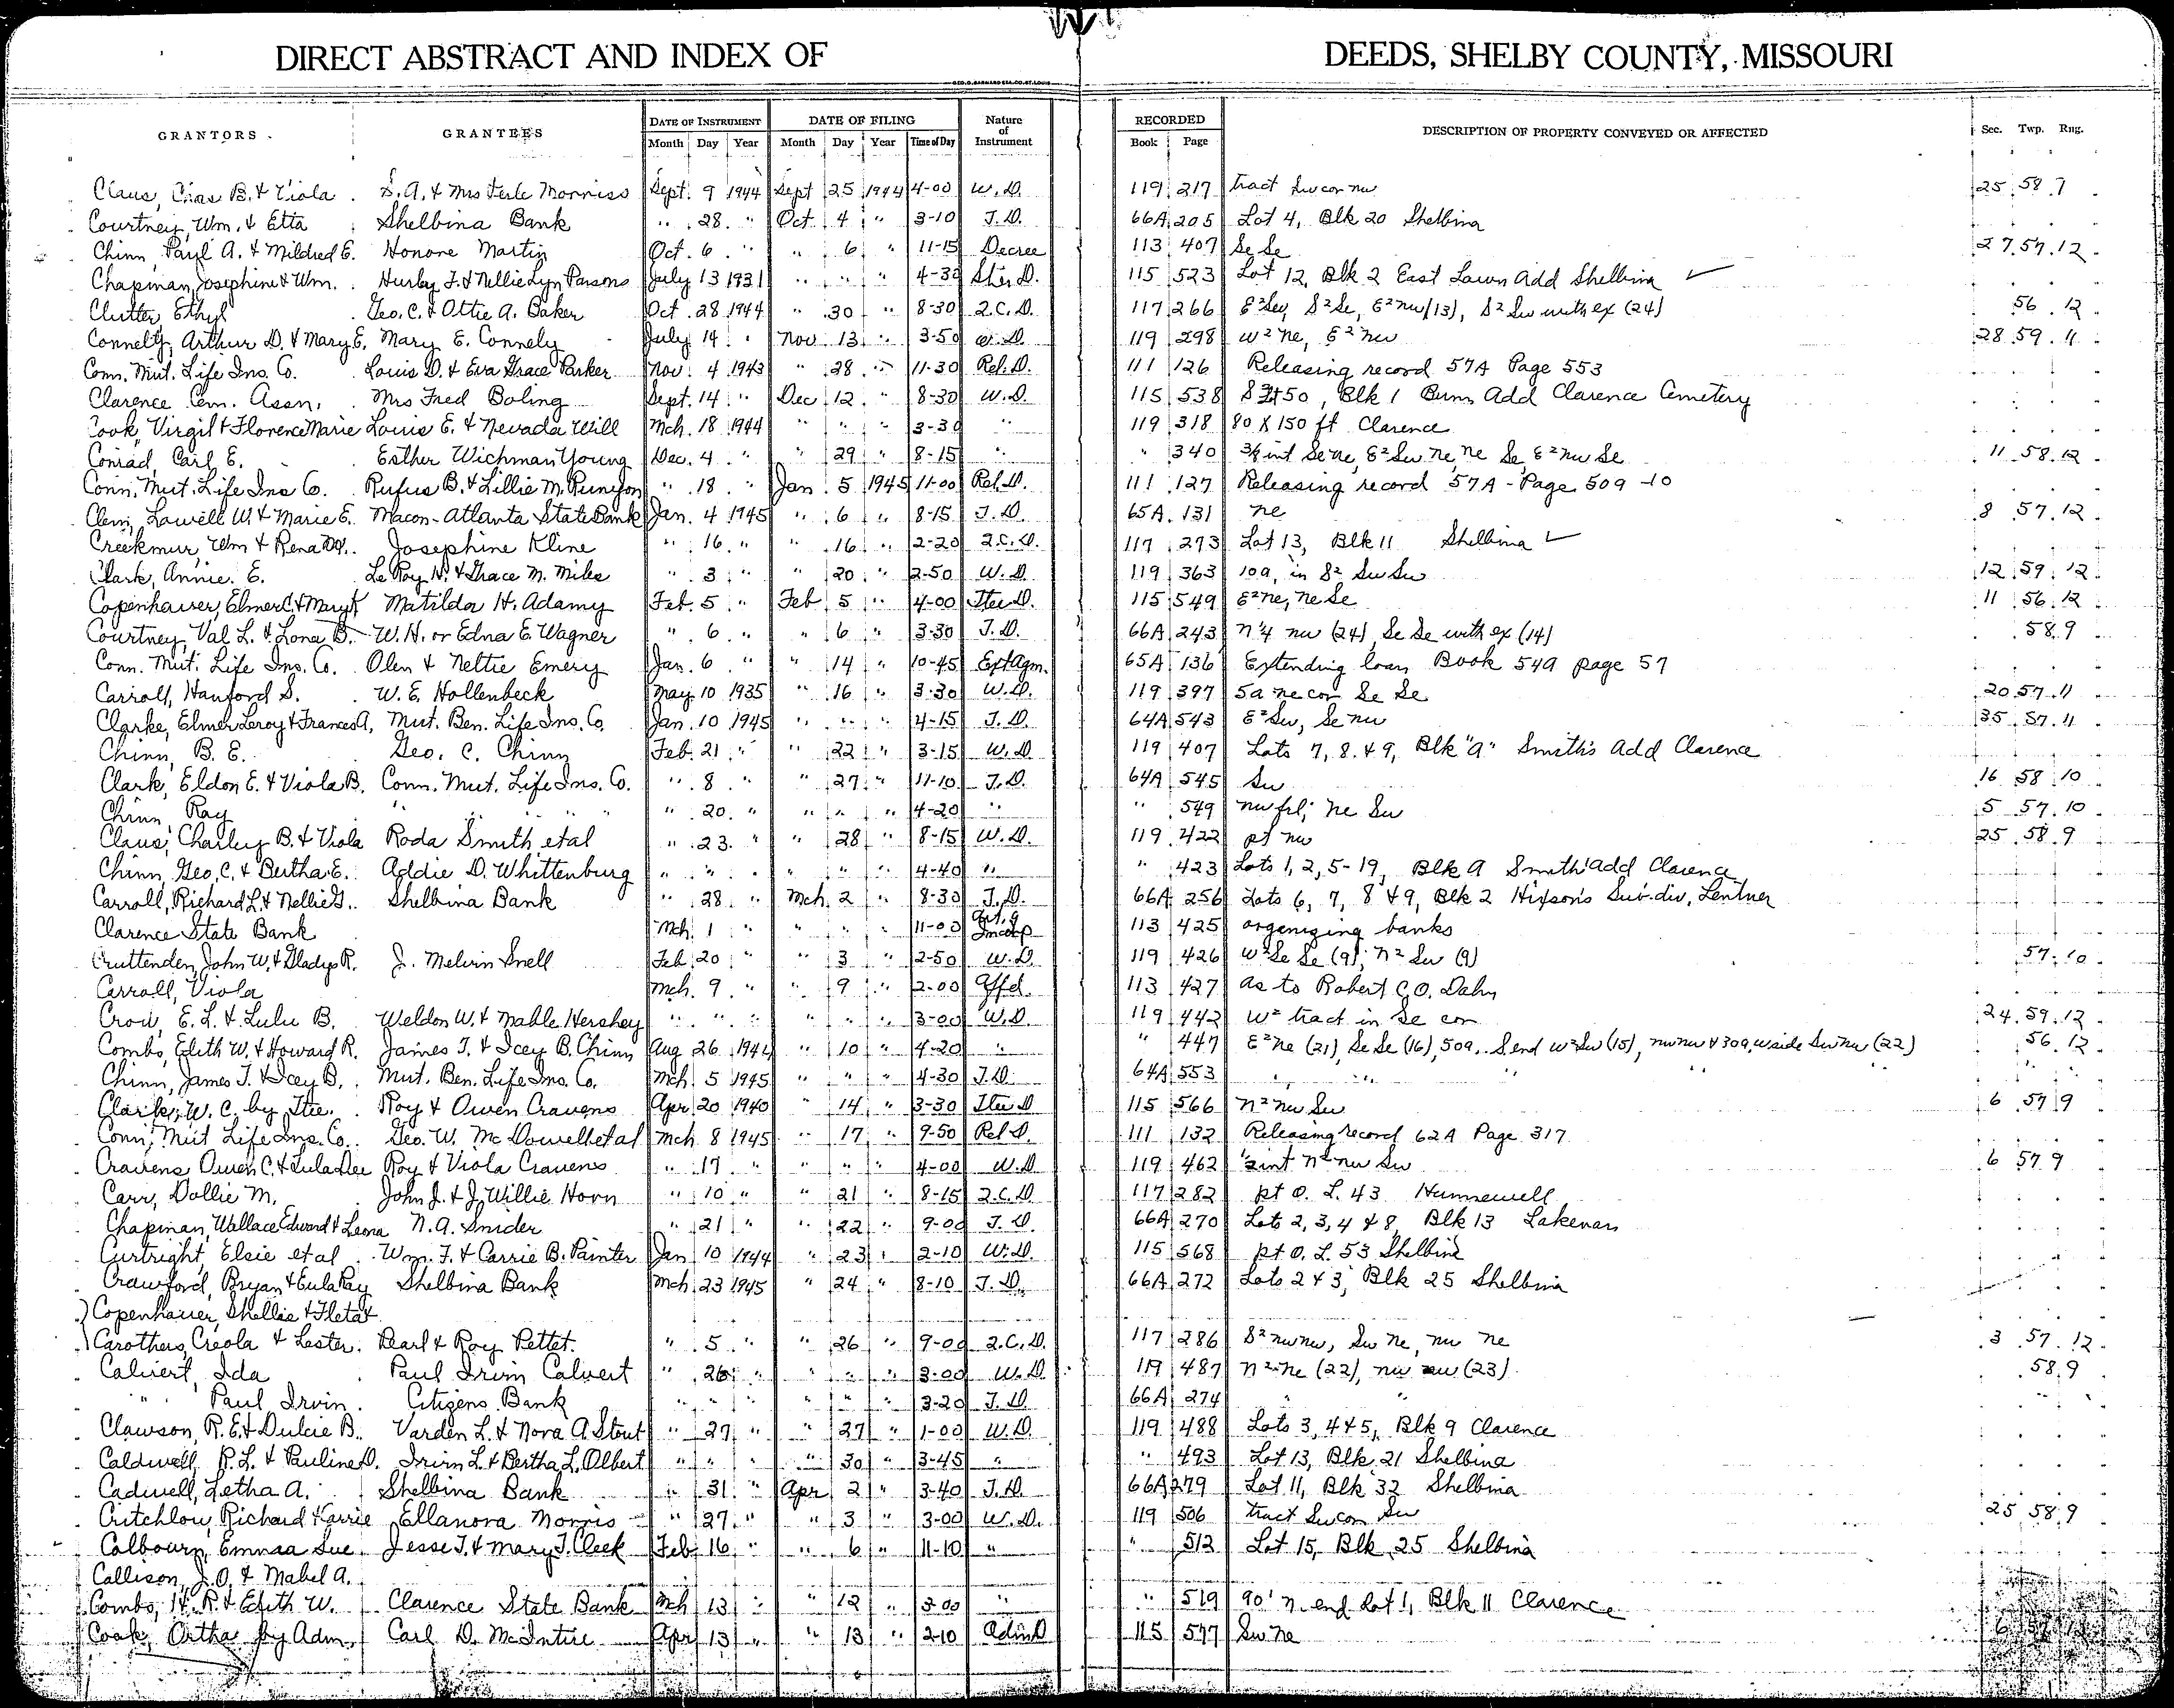 DIRECT ABSTRACT AND INDEX OF DEEDS, SHELBY COUNTY, MISSOURI
GRANTORS GRANTEES DATE OF INSTRUMENT DATE OF FILING Nature of Instrument RECORDED DESCRIPTION OF PROPERTY CONVEYED OR AFFECTED Sec. Twp. Rng.
Month Day Year Month Day Year Time of Day Book Page
Claus, Chas B. & Viola S. A. & Mrs Ferle Morriss Sept. 9 1944 Sept 25 1944 4-00 W.D. 119 217 tract Sw cor nw 25 58 7
Courtney, Wm. & Etta Shelbina Bank " 28 " Oct 4 " 3-10 T.D. 66A 205 Lot 4, Blk 20 Shelbina
Chinn, Paul A. & Mildred E. Honore Martin Oct. 6 " " 6 " 11-15 Decree 113 407 Se Se 27 57 12
Chapman, Josephine & Wm. Hurley F. & Nellie Lyn Parsons July 13 1931 " " " 4-30 Sher D. 115 523 Lot 12, Blk 2 East Lawn Add Shelbina
Clutter, Ethyl Geo. C. & Ottie A. Baker Oct. 28 1944 " 30 " 8-30 2.C.D. 117 266 E² Sw, S² Se, E² nw (13), S² Sw with ex (24) 56 12
Connelly, Arthur D. & Mary E. Mary E. Connely July 14 " Nov 13 " 3-50 W.D. 119 298 W² ne, E² nw 28 59 11
Conn. Mut. Life Ins. Co. Louis D. & Eva Grace Parker Nov. 4 1943 " 28 " 11-30 Rel. D. 111 126 Releasing record 57A Page 553
Clarence Cem. Assn. Mrs Fred Boling Sept. 14 " Dec 12 " 8-30 W.D. 115 538 50, Blk 1 Burns Add Clarence Cemetery
Cook, Virgil & Florence Marie Louis E. & Nevada Will Mch. 18 1944 " " " 3-30 " 119 318 80 X 150 ft Clarence
Conrad, Carl E. Esther Wichman Young Dec. 4 " " 29 " 8-15 " " 340 int Se ne, E² Sw ne, ne Se, E² nw Se 11 58 12
Conn. Mut. Life Ins Co. Rufus B. & Lillie M. Runyon " 18 " Jan. 5 1945 11-00 Rel. D. 111 127 Releasing record 57A - Page 509 -10
Clem, Lowell W. & Marie E. Macon-Atlanta State Bank Jan. 4 1945 " 6 " 8-15 T.D. 65A 131 ne 8 57 12
Creekmur, Wm & Rena Josephine Kline " 16 " " 16 " 2-20 2.C.D. 117 273 Lot 13, Blk 11 Shelbina
Clark, Annie. E. Le Roy H. & Grace M. Miles " 3 " " 20 " 2-50 W.D. 119 363 10a, in S² Sw Sw 12 59 12
Copenhaver, Elmer C. & Mary K Matilda H. Adamy Feb. 5 " Feb 5 " 4-00 Ttee D. 115 549 E² ne, ne Se 11 56 12
Courtney, Val L. & Lona B. W. H. or Edna E. Wagner " 6 " " 6 " 3-30 T.D. 66A 243 n¼ nw (24), Se Se with ex (14) 58 9
Conn. Mut. Life Ins. Co. Olen & Nettie Emery Jan. 6 " " 14 " 10-45 Ext Agm. 65A 136 Extending loan Book 54A page 57
Carroll, Hanford S. W. E. Hollenbeck May 10 1935 " 16 " 3-30 W.D. 119 397 5a ne cor Se Se 20 57 11
Clarke, Elmer Leroy & Frances A, Mut. Ben. Life Ins. Co. Jan. 10 1945 " " " 4-15 T.D. 64A 543 E² Sw, Se nw 35 57 11
Chinn, B. E. Geo. C. Chinn Feb. 21 " " 22 " 3-15 W.D. 119 407 Lots 7, 8 & 9, Blk "A" Smith's Add Clarence
Clark, Eldon E. & Viola B. Conn. Mut. Life Ins. Co. " 8 " " 27 " 11-10 T.D. 64A 545 Sw 16 58 10
Chinn, Ray " " " " " 20 " " " " 4-20 " " 549 nw frl; ne Sw 5 57 10
Claus, Charley B. & Viola Roda Smith etal " 23 " " 28 " 8-15 W.D. 119 422 pt nw 25 58 9
Chinn, Geo. C. & Bertha E. Addie D. Whittenburg " " " " " " 4-40 " " 423 Lots 1, 2, 5-19, Blk A Smith Add Clarence
Carroll, Richard L. & Nellie G. Shelbina Bank " 28 " Mch 2 " 8-30 T.D. 66A 256 Lots 6, 7, 8 & 9, Blk 2 Hixson's Sub-div, Lentner
Clarence State Bank Mch. 1 " " " " 11-00 Art. of Incorp 113 425 organizing banks
Cruttenden, John W. & Gladys R. J. Melvin Snell Feb 20 " " 3 " 2-50 W.D. 119 426 W² Se Se (9); n² Sw (9) 57 10
Carroll, Viola Mch. 9 " " 9 " 2-00 Affd. 113 427 as to Robert C. O. Dahn
Crow, E. L. & Lulu B. Weldon W. & Mable Hershey " " " " " " 3-00 W.D. 119 442 W² tract in Se cor 24 59 12
Combs, Edith W. & Howard R. James T. & Icey B. Chinn Aug 26 1944 " 10 " 4-20 " " 447 E² ne (21), Se Se (16), 50a, S end W² Sw (15), nw nw & 30a, W side Sw nw (22) 56 12
Chinn, James T. & Icey B. Mut. Ben. Life Ins. Co. Mch. 5 1945 " " " 4-30 T.D. 64A 553 " " " " "
Clark, W. C. by Ttee. Roy & Owen Cravens Apr 20 1940 " 14 " 3-30 Ttee D 115 566 n² nw Sw 6 57 9
Conn. Mut Life Ins. Co. Geo. W. McDowell et al Mch 8 1945 " 17 " 9-50 Rel D. 111 132 Releasing record 62A Page 317
Cravens Owen C. & Eula Lee Roy & Viola Cravens " 17 " " " " 4-00 W.D. 119 462 ½ int n² nw Sw 6 57 9
Carr, Dollie M. John J. & J. Willie Horn " 10 " " 21 " 8-15 2.C.D. 117 282 pt O. L. 43 Hunnewell
Chapman, Wallace Edward & Leona N. A. Snider " 21 " " 22 " 9-00 T.D. 66A 270 Lots 2, 3, 4 & 8, Blk 13 Lakenan
Curtright, Elsie et al Wm. F. & Carrie B. Painter Jan 10 1944 " 23 " 2-10 W.D. 115 568 pt O. L. 53 Shelbina
Crawford, Bryan & Eula Ray Shelbina Bank Mch 23 1945 " 24 " 8-10 T.D. 66A 272 Lots 2 & 3, Blk 25 Shelbina
Copenhaver, Shellie & Fleta
Carothers, Creola & Lester. Pearl & Roy Pettet. " 5 " " 26 " 9-00 2.C.D. 117 286 S² nw nw, Sw ne, nw ne 3 57 12
Calvert, Ida Paul Irvin Calvert " 26 " " " " 3-00 W.D. 119 487 n² ne (22), nw nw (23) 58 9
" Paul Irvin. Citizens Bank " " " " " " 3-20 T.D. 66A 274 " " " "
Clawson, R. E. & Dulcie B. Varden L. & Nora A. Stout " 27 " " 27 " 1-00 W.D. 119 488 Lots 3, 4 & 5, Blk 9 Clarence
Caldwell, R. L. & Pauline D. Irvin L. & Bertha L. Albert " " " " 30 " 3-45 " " 493 Lot 13, Blk 21 Shelbina
Cadwell, Letha A. Shelbina Bank " 31 " Apr 2 " 3-40 T.D. 66A 279 Lot 11, Blk 32 Shelbina
Critchlow, Richard & Carrie Ellanora Morris " 27 " " 3 " 3-00 W.D. 119 506 tract Sw cor Sw 25 58 9
Colbourn, Emmaa Sue Jesse T. & Mary J. Cleek Feb. 16 " " 6 " 11-10 " " 512 Lot 15, Blk 25 Shelbina
Callison, J. O. & Mabel A.
Combs, H. R. & Edith W. Clarence State Bank Mch 13 " " 12 " 3 00 " " 519 90' n. end Lot 1, Blk 11 Clarence
Cook, Ortha by Adm. Carl D. McIntire Apr 13 " " 13 " 2-10 Adm D 115 577 Sw ne